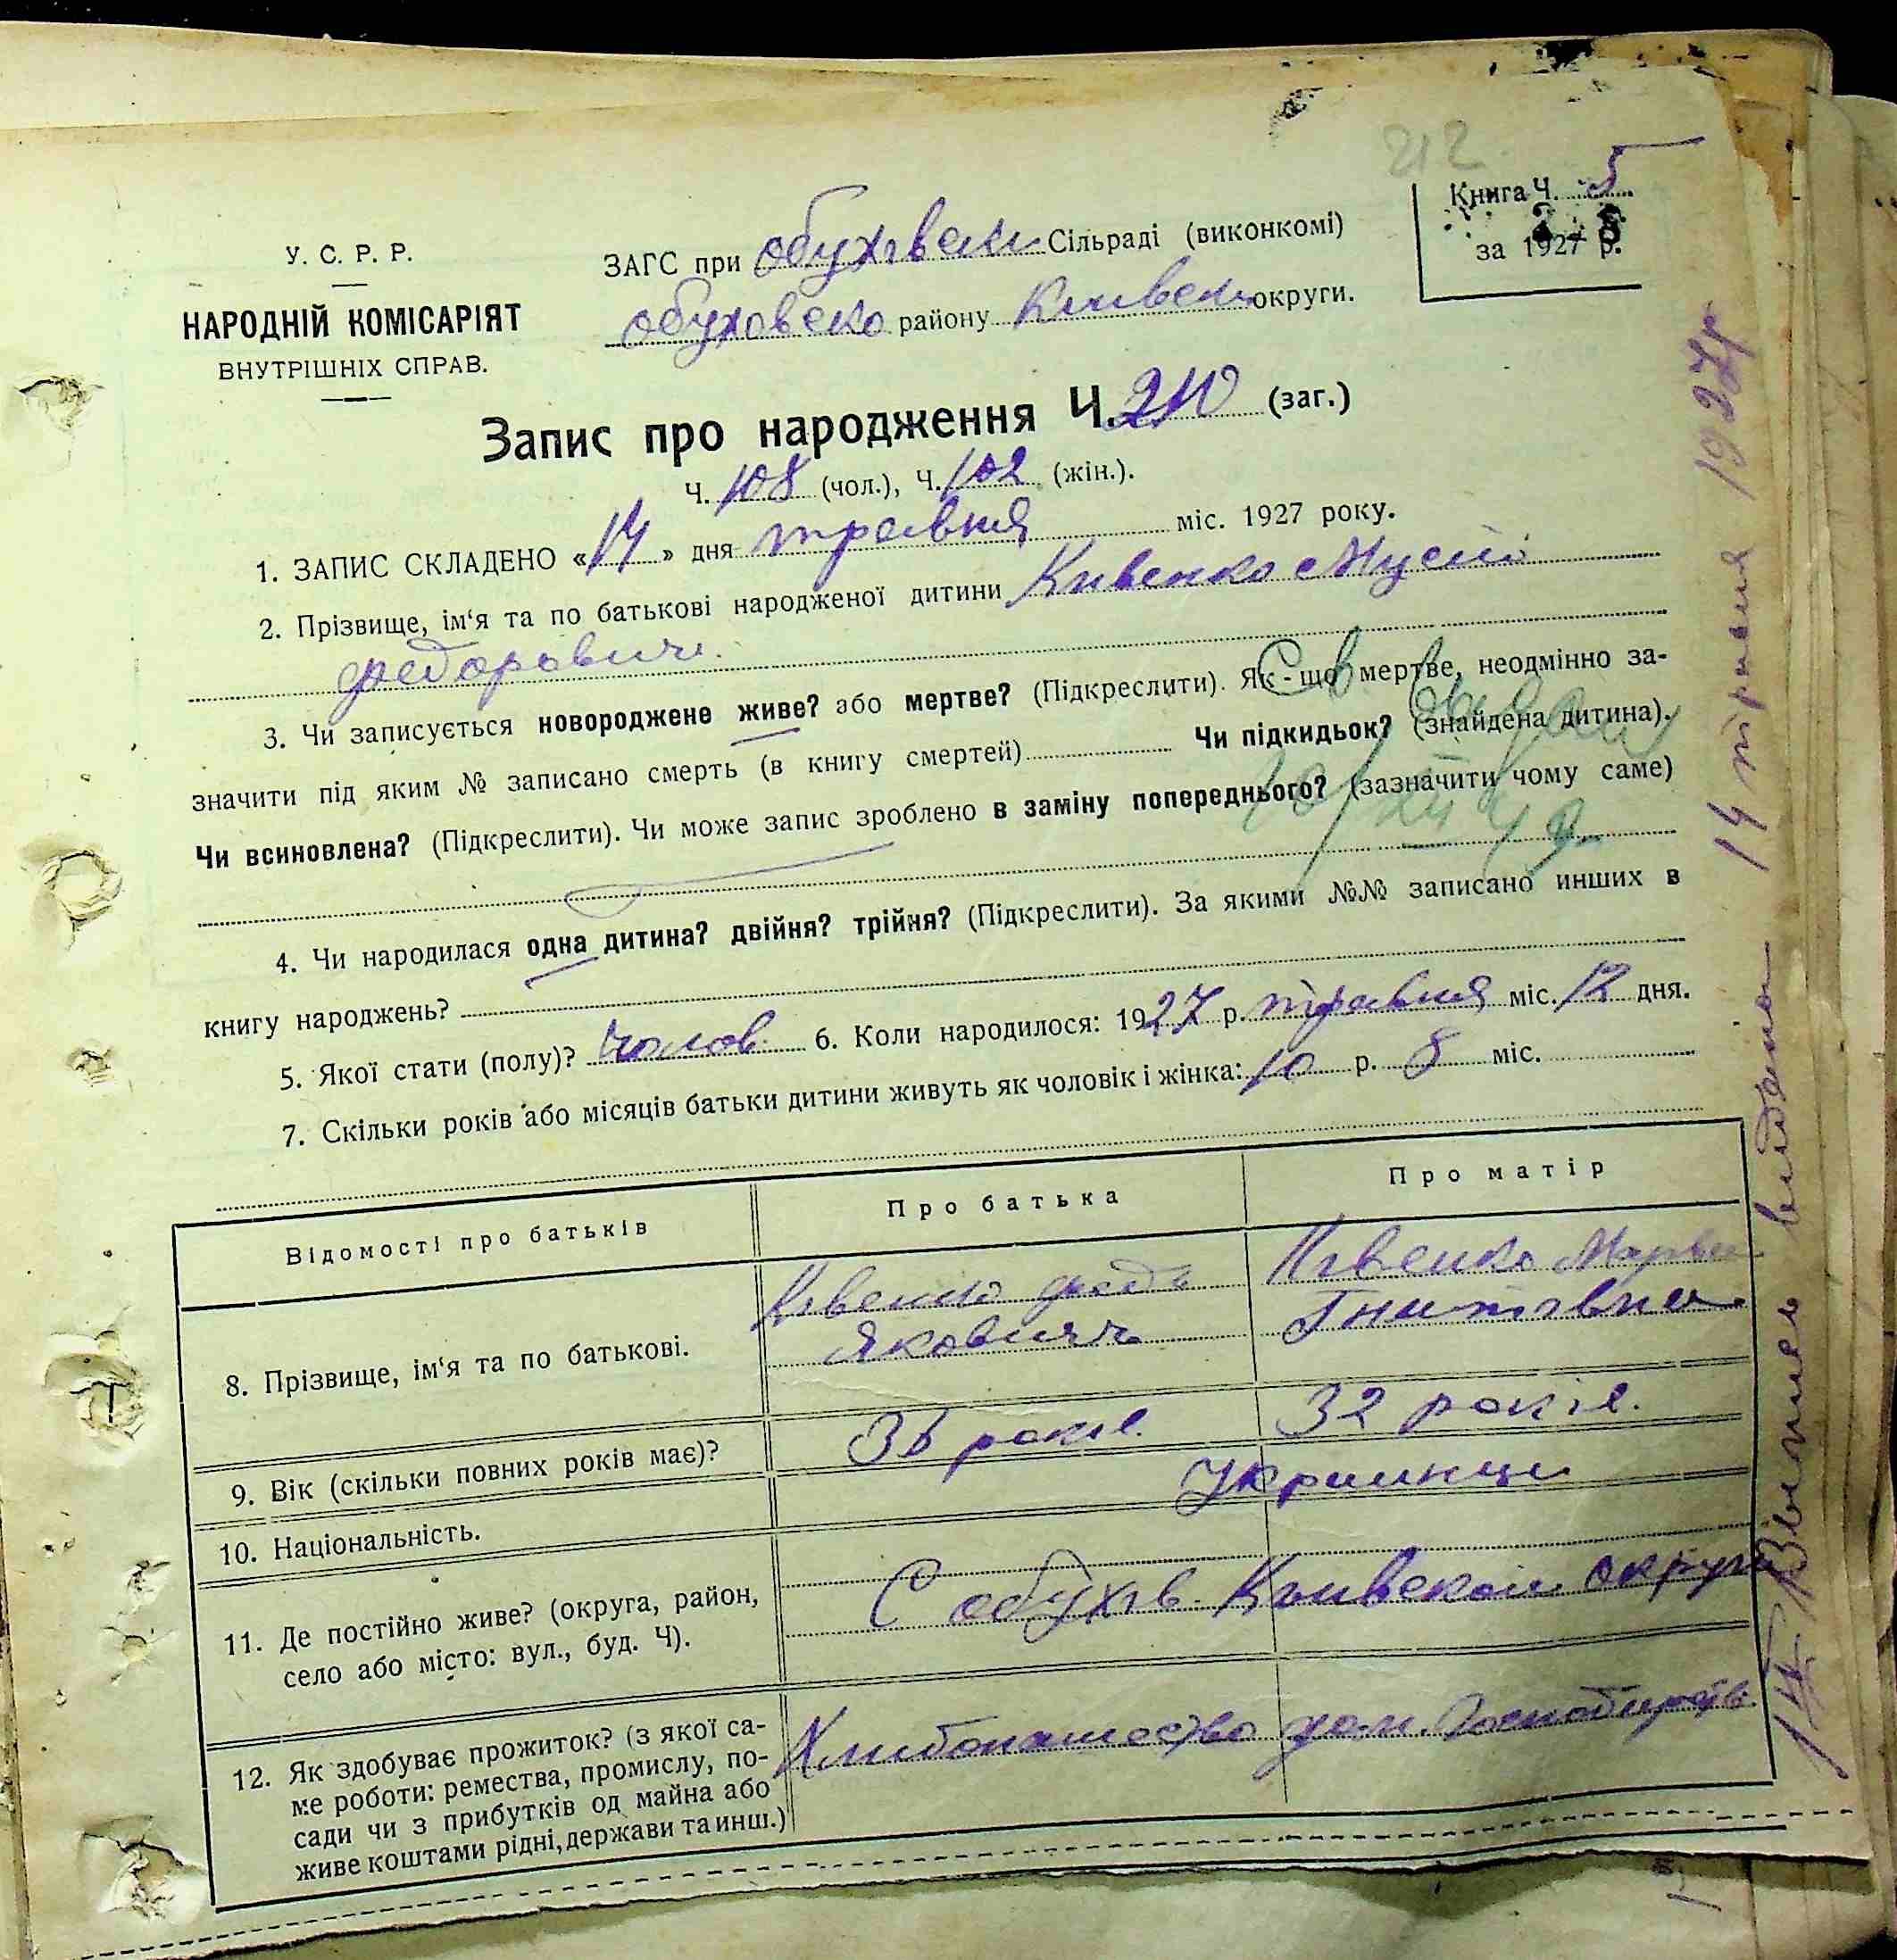 212
Книга Ч. 5
за 1927 р.
У. С. Р. Р.
НАРОДНІЙ КОМІСАРІЯТ
ВНУТРІШНІХ СПРАВ.
ЗАГС при Обухівські Сільраді (виконкомі)
Обуховсько району Київськ округи.
Запис про народження Ч. 210 (заг.)
Ч. 108 (чол.), Ч. 102 (жін.).
1. ЗАПИС СКЛАДЕНО «14» дня травня міс. 1927 року.
2. Прізвище, ім‘я та по батькові народженої дитини Кивенко Мусій
Федорович.
3. Чи записується новороджене живе? або мертве? (Підкреслити). Як-що мертве, неодмінно за-
значити під яким № записано смерть (в книгу смертей) Чи підкидьок? (знайдена дитина).
Чи всиновлена? (Підкреслити). Чи може запис зроблено в заміну попереднього? (зазначити чому саме)
4. Чи народилася одна дитина? двійня? трійня? (Підкреслити). За якими №№ записано инших в
книгу народжень?
5. Якої стати (полу)? чолов. 6. Коли народилося: 1927 р. травня міс. 12 дня.
7. Скільки років або місяців батьки дитини живуть як чоловік і жінка: 10 р. 8 міс.
Відомості про батьків Про батька Про матір
8. Прізвище, ім‘я та по батькові. Ківенко Федь Якович Ківенко Марья Гнатівна
9. Вік (скільки повних років має)? 36 років. 32 років.
10. Національність. Украинци
11. Де постійно живе? (округа, район,
село або місто: вул., буд. Ч). С Обухів Киівской округи
12. Як здобуває прожиток? (з якої са-
ме роботи: ремества, промислу, по-
сади чи з прибутків од майна або
живе коштами рідні, держави та инш.) Хлибопашество дом. Господарств.
Выпись видано 14 травня 1927р